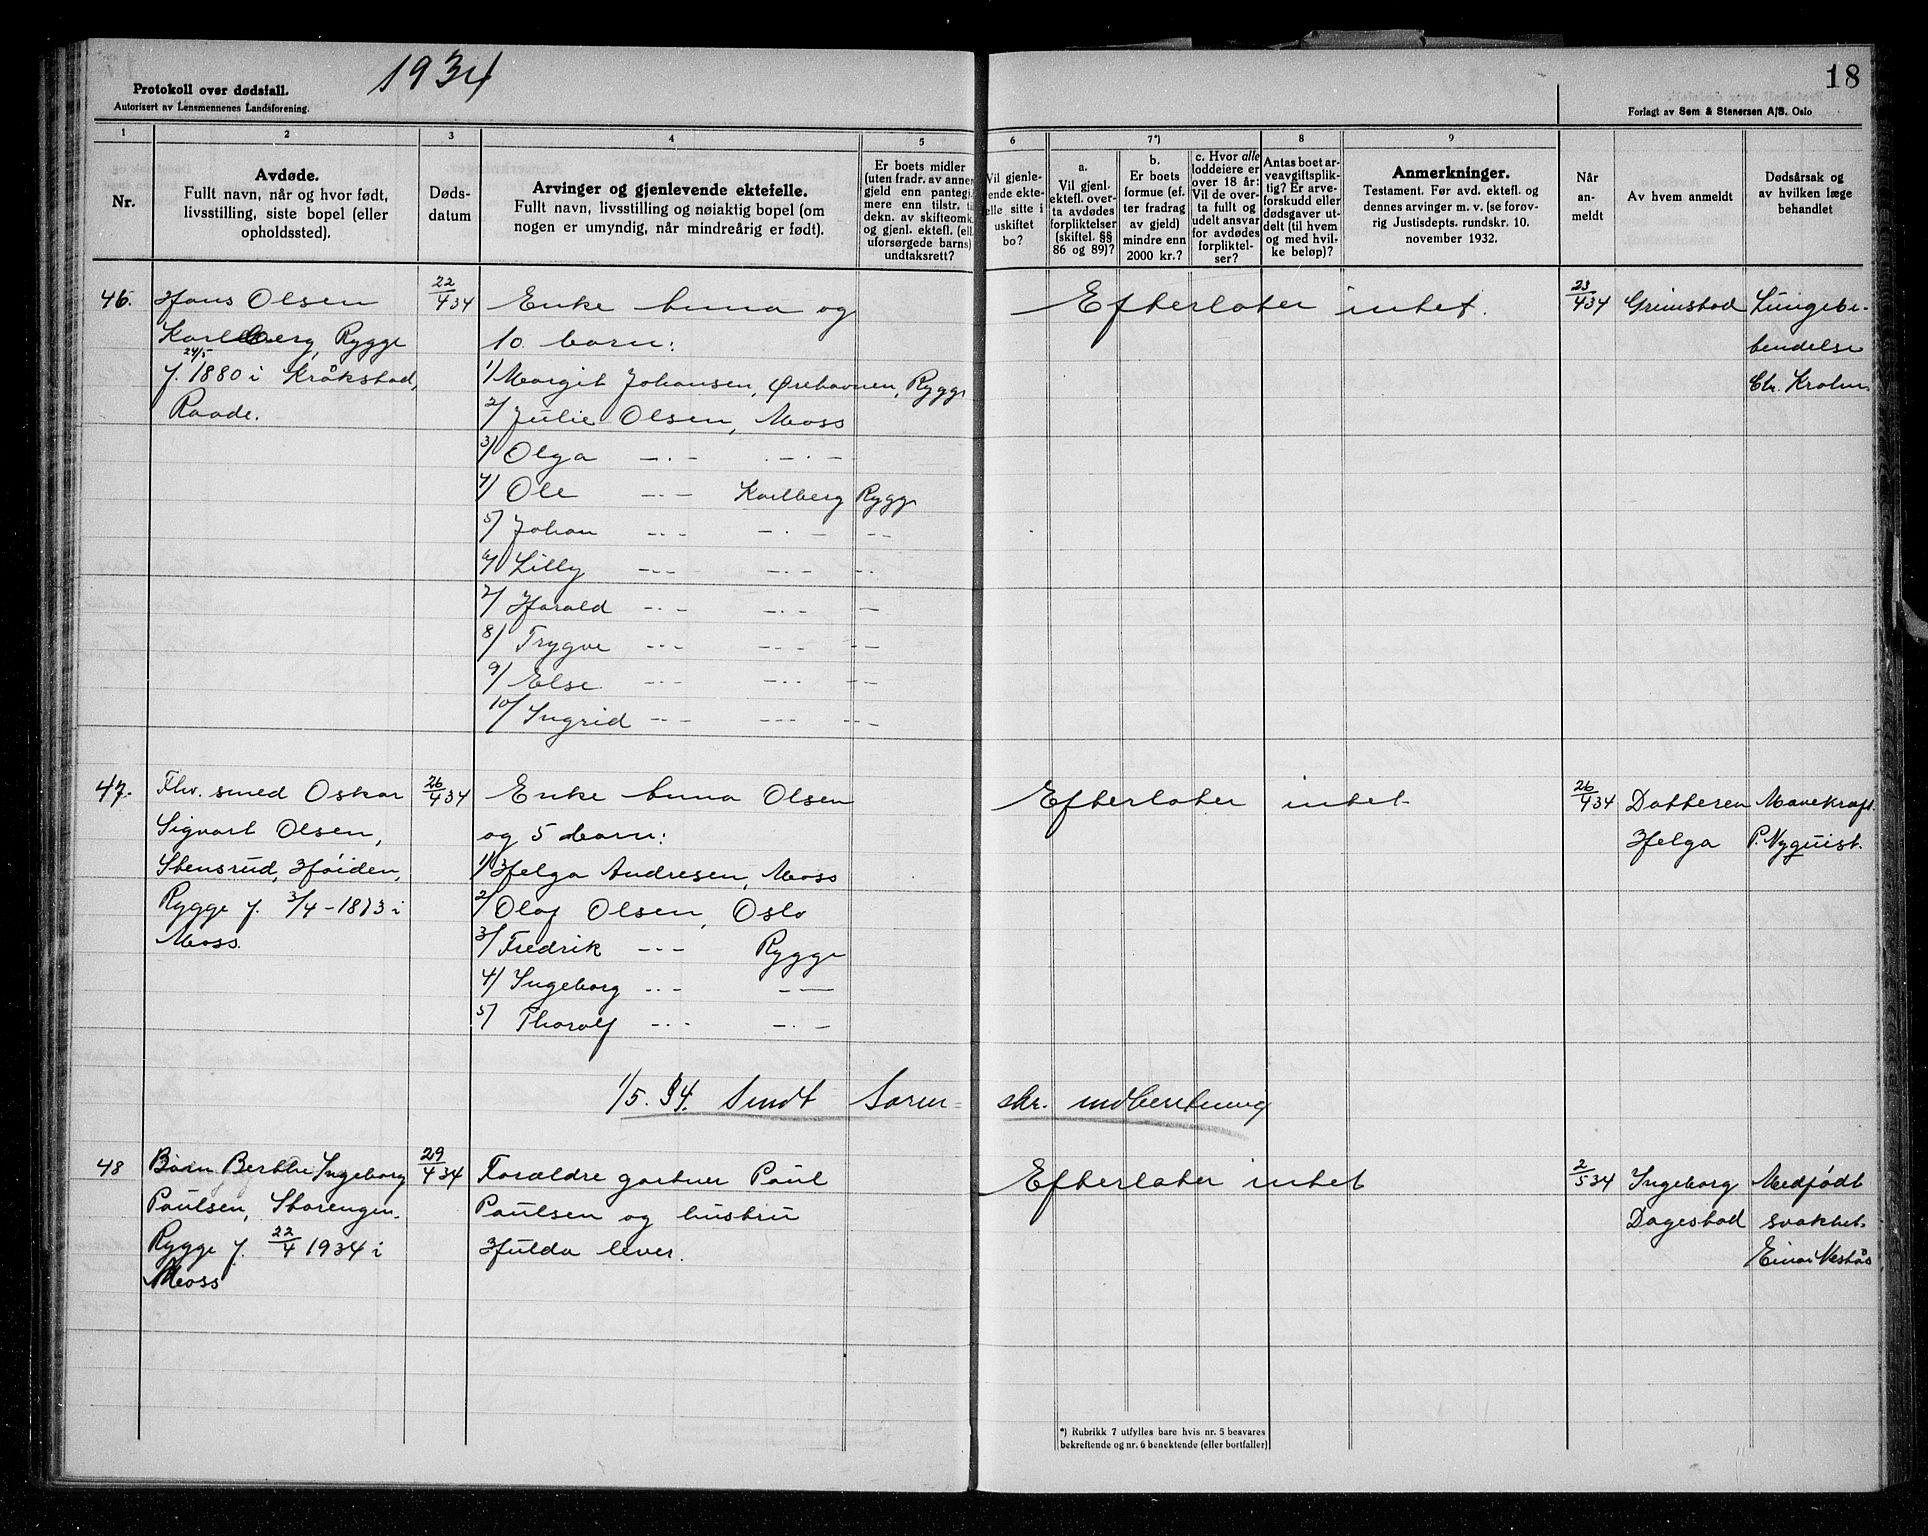 1934
18
Protokoll over dødsfall.
Autorisert av Lensmennenes Landsforening.
Forlagt av Sem & Stenersen A/S. Oslo
1 2 3 4 5 6 7*) 8 9
Nr.
Avdøde.
Fullt navn, når og hvor født,
livsstilling, siste bopel (eller
opholdssted).
Døds-
datum
Arvinger og gjenlevende ektefelle.
Fullt navn, livsstilling og nøiaktig bopel (om
nogen er umyndig, når mindreårig er født).
Er boets midler
(uten fradr. av annen
gjeld enn pantegj.
mere enn tilstr. til
dekn. av skifteomk.
og gjenl. ektefl. (ell.
uforsørgede barns)
undtaksrett?
Vil gjenle-
vende ekte-
elle sitte i
uskiftet
bo?
a.
Vil gjenl.
ektefl. over-
ta avdødes
forpliktelser
(skiftel. §§
86 og 89)?
b.
Er boets
formue (ef.
ter fradrag
av gjeld)
mindre enn
2000 kr.?
c. Hvor alle
loddeiere er
over 18 år:
Vil de over-
ta fullt og
udelt ansvar
for avdødes
forpliktel-
ser?
Antas boet ar-
veavgiftsplik-
tig? Er arve-
forskudd eller
dødsgaver ut-
delt (til hvem
og med hvil-
ke beløp)?
Anmerkninger.
Testament. Før avd. ektefl. og
dennes arvinger m. v. (se forøv-
rig Justisdepts. rundskr. 10.
november 1932.
Når
an-
meldt
Av hvem anmeldt
Dødsårsak og
av hvilken læge
behandlet
46. Hans Olsen 22/4 34 Enke Anna og Efterlater intet. 23/4 34 Grimstad Lungebe-
Karlberg, Rygge 10 barn: tendelse
f. 24/5 1880 i Kråkstad, 1/ Margit Johansen, Ørehavnen, Rygge Chr. Krohn.
Raade. 2/ Julie Olsen, Moss
3/ Olga -.- .-.-
4/ Ole -.- Karlberg Rygge
5/ Johan -.- -.- --
6/ Lilly -.- -.- -.
7/ Harald -.- -.- -
8/ Trygve -.- -.- --
9/ Else -.- -.- --
10/ Ingrid -.- -.- --
47. Fhv. smed Oskar 26/4 34 Enke Anna Olsen Efterlater intet 26/4 34 Datteren Mavekræft.
Sigvart Olsen, og 5 barn: Helga P. Nyquist.
Stensrud, Høiden, 1/ Helga Andresen, Moss
Rygge f. 3/4-1873 i 2/ Olaf Olsen, Oslo
Moss. 3/ Fredrik -.- Rygge
4/ Ingeborg -.- --
5/ Thorolf -.- -.-
1/5. 34. Sendt Soren- skr. indberetning
48 Barn Berthe Ingeborg 29/4 34 Forældre gartner Paul Efterlater intet 2/5 34 Ingeborg Medfødt
Paulsen, Storengen Paulsen og hustru Dagestad svakhet
Rygge f. 22/4 1934 i Hulda lever. Einar Nestås
Moss
*) Rubrikk 7 utfylles bare hvis nr. 5 besvares
bekreftende og nr. 6 benektende (eller bortfaller)